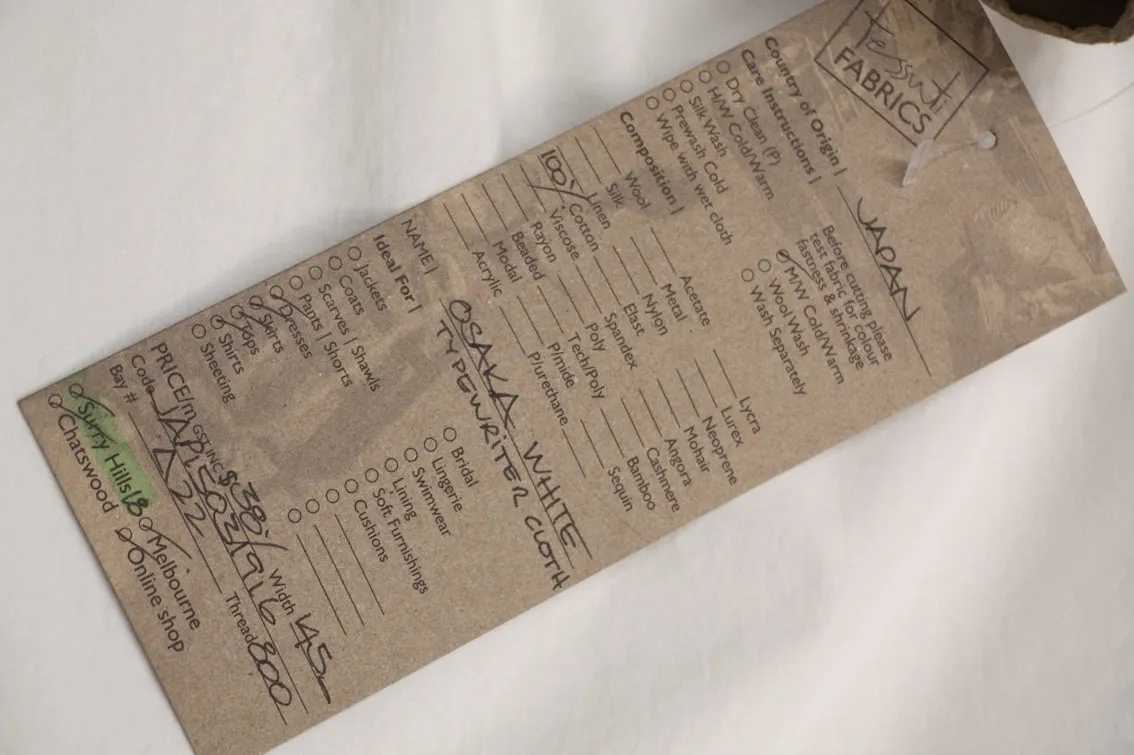 Tessuti
FABRICS
Country of Origin | JAPAN
Care Instructions |
Dry Clean (P)
H/W Cold/Warm
Silk Wash
Prewash Cold
Wipe with wet cloth
Before cutting please
test fabric for colour
fastness & shrinkage
M/W Cold/Warm
Wool Wash
Wash Separately
Composition |
Wool
Silk
Linen
100% Cotton
Viscose
Rayon
Beaded
Modal
Acrylic
Acetate
Metal
Nylon
Elast
Spandex
Poly
Tech/Poly
P/mide
P/urethane
Lycra
Lurex
Neoprene
Mohair
Angora
Cashmere
Bamboo
Sequin
NAME | OSAKA WHITE
TYPEWRITER CLOTH
Ideal For |
Jackets
Coats
Scarves | Shawls
Pants | Shorts
Dresses
Skirts
Tops
Shirts
Sheeting
Bridal
Lingerie
Swimwear
Lining
Soft Furnishings
Cushions
PRICE/m GST INC $38/ Width 145
Code JAP1503/916 Thread 800
Bay # A22
Surry Hills 18 Melbourne
Chatswood Online shop